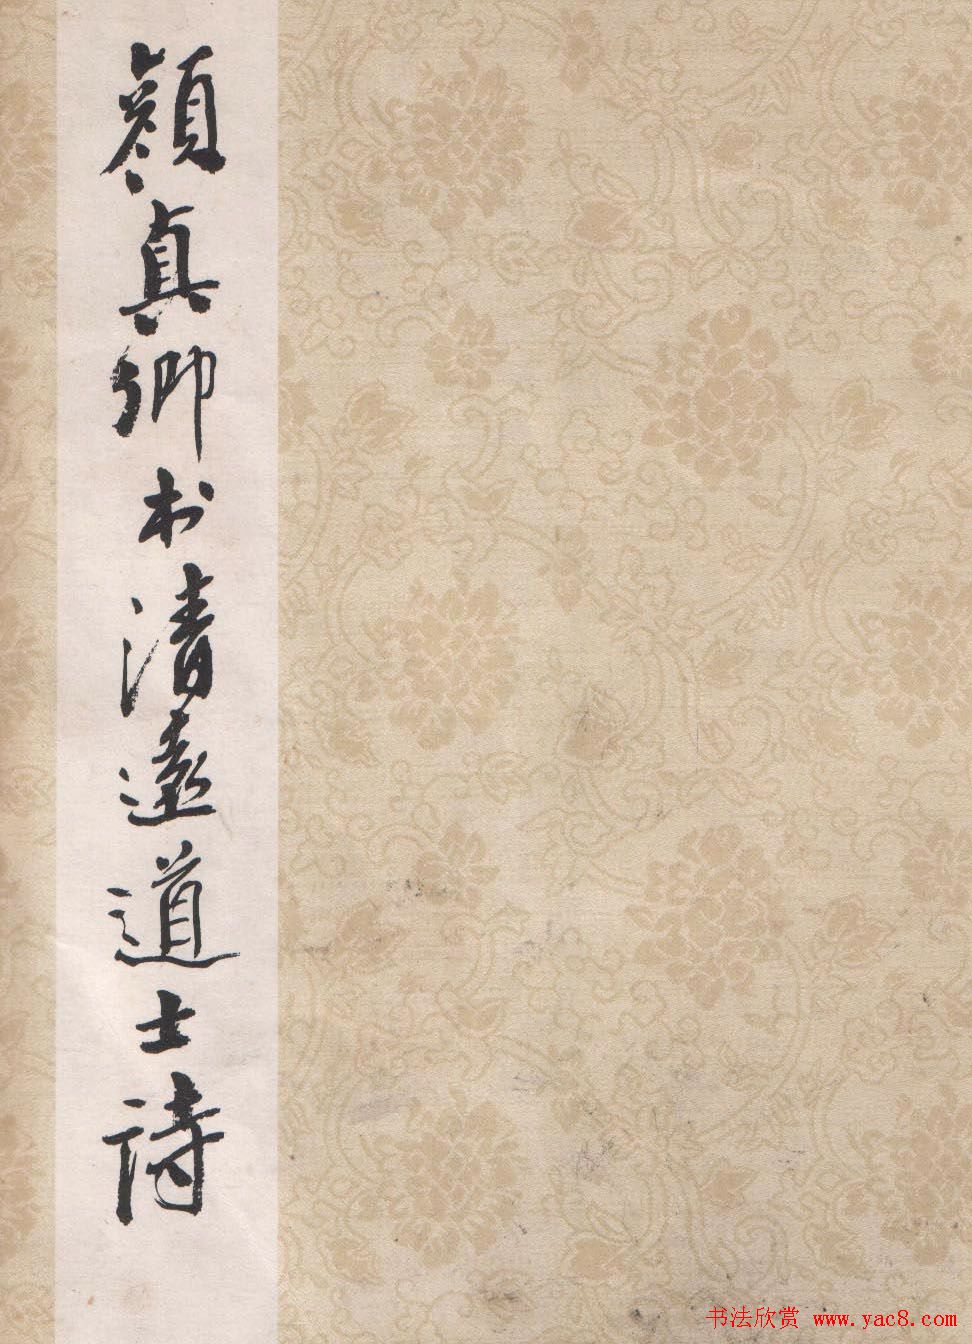 顔真卿书清遠道士詩
书法欣赏 www.yac8.com